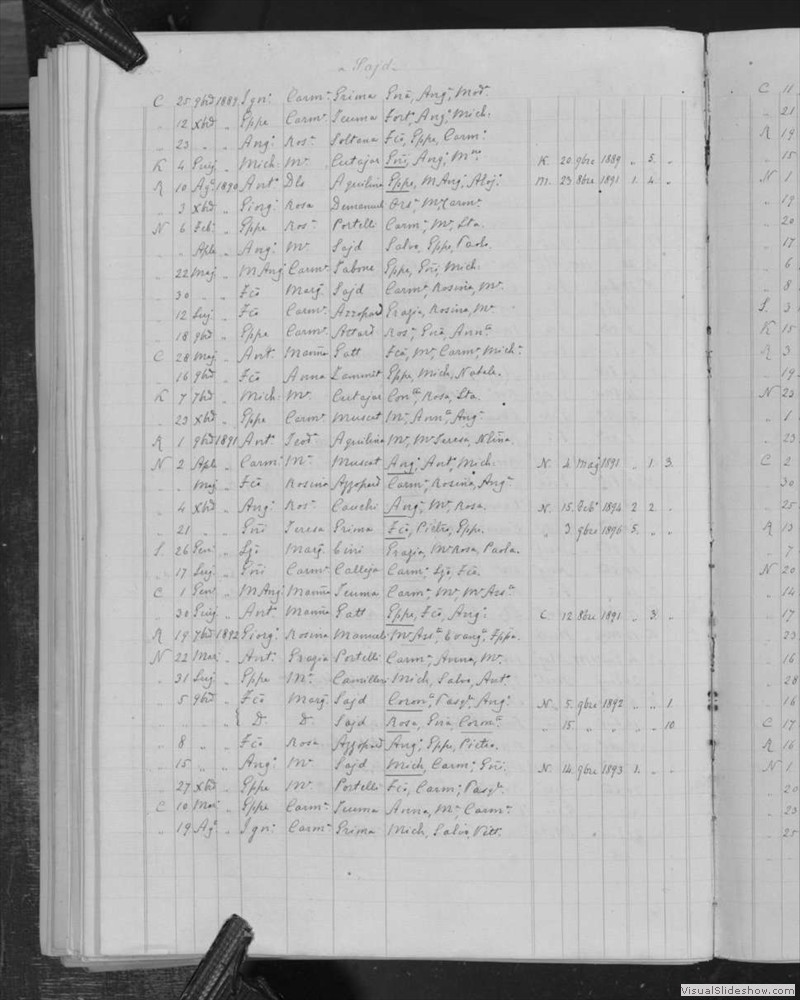 Sajd
C 25 9bre 1889 Ign: Carm: Grima Gnã, Ang:, Mod.
" 12 Xbre " Gppe Carm: Teuma Fort:, Ang:, Mich.
" 23 " " Ang: Ros: Soltana Fcõ, Gppe, Carm:
K 4 Mich. Mr Cutajar Gnĩ, Ang:, K. 20 9bre 1889 " 5. "
R 10 Ag: 1890 Ant: Dls Aquilina Gppe, M Ang:, Aloj: M. 23 8bre 1891 1. 4. "
" 3 Xbre " Giorg: Rosa Demanuele Mr Carm:
N 6 Feb: " Gppe Ros: Portelli Carm:, Mr, Sta.
" Aple " Ang: Mr Sajd Salvo, Gppe, Paolo.
" 22 Maj " M Ang: Carm: Tabone Gppe, Gnĩ, Mich.
" 30 " " Fcõ Marg: Sajd Carm:, Rosina, Mr.
" 12 Lug " Fcõ Carm: Azzopard Grazia, Rosina, Mr
" 18 9bre " Gppe Carm: Attard Ros:, Gnã, Anna
C 28 Maj " Ant: Gatt Fcõ, Mr, Carm:, Mich:
" 16 9bre " Fcõ Anna Zammit Gppe, Mich, Natale.
K 7 7bre " Mich. Mr Cutajar Rosa, Sta.
" 23 Xbre " Gppe Carm: Muscat Mr, Anna, Ang:
R 1 9bre 1891 Ant: Teod: Aquilina Mr, Mr Teresa,
N 2 Aple " Carm: Mr Muscat Ang:, Ant:, Mich. N. 4. Maj 1891 " 1. 3.
" Maj " Fcõ Rosina Azzopard Carm:, Rosina, Ang:
" 4 Xbre " Ang: Ros: Cauchi Ang:, Mr, Rosa. N. 15. 1894 2. 2. "
" 21 " Gnĩ Teresa Grima Fcõ, Pietro, Gppe. " 3 9bre 1896 5. " "
S. 26 Gen " Lg: Marg: Cini Grazia, Mr Rosa, Paola.
" 17 Lug " Gnĩ Carm: Calleja Carm:, Lg:, Fcõ.
C 1 Gen " M Ang: Teuma Carm:, Mr, Mr Ass:
" 30 Giug " Ant: Gatt Gppe, Fcõ, Ang: C. 12 8bre 1891 " 3. "
R 19 7bre 1892 Giorg: Rosina Mr Ass:, Evang:,
N 22 Mar " Ant: Grazia Portelli Carm:, Anna, Mr.
" 31 Lug " Gppe Mr Camilleri Mich, Salvo, Ant:
" 5 9bre " Fcõ Marg: Sajd Coron:, Pasq:, Ang: N. 5. 9bre 1892 " " 1.
" " " D. D. Sajd Rosa, Gnã, Coron: " 15. " " " " 10
" 8 " " Fcõ Rosa Azzopard Ang:, Gppe, Pietro.
" 15 " " Ang: Mr Sajd Mich, Carm:, Gnĩ. N. 14. 9bre 1893 1. " "
" 27 Xbre " Gppe Mr Portelli Fcõ, Carm:, Pasq:
C 10 Mar " Gppe Carm: Teuma Anna, Mr, Carm:
" 19 Ag: " Ign: Carm: Grima Mich, Salvo, Vitt.
C 11
" 21
R 19
" 15
N 1
" 19
" 20
" 17
" 6
" 8
S. 3
K 15
R 3
" 19
N 23
" 1
" 23
C 2
" 30
" 25
R 13
" 7
N 20
" 14
" 17
" 23
" 16
" 28
" 16
C 17
R 16
N 1
" 20
" 23
" 25
VisualSlideshow.com